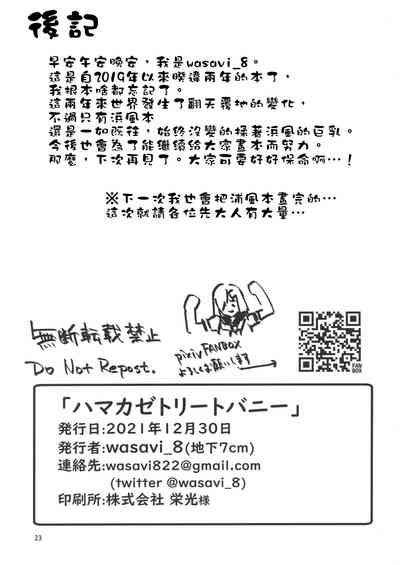 後記
早安午安晚安，我是wasavi_8。
這是自2019年以來暌違兩年的本了，
我根本啥都忘記了。
這兩年來世界發生了翻天覆地的變化，
不過只有浜風本
還是一如既往，始終沒變的揉著浜風的巨乳。
今後也會為了能繼續給大家畫本而努力。
那麼，下次再見了。大家可要好好保命啊…！
※下一次我也會把浦風本畫完的…
這次就請各位先大人有大量…
無断転載禁止
Do Not Repost.
pixivFANBOX
よろしくお願いします
FAN
BOX
「ハマカゼトリートバニー」
発行日:2021年12月30日
発行者:wasavi_8(地下7cm)
連絡先:wasavi822@gmail.com
(twitter @wasavi_8)
印刷所:株式会社 栄光様
23